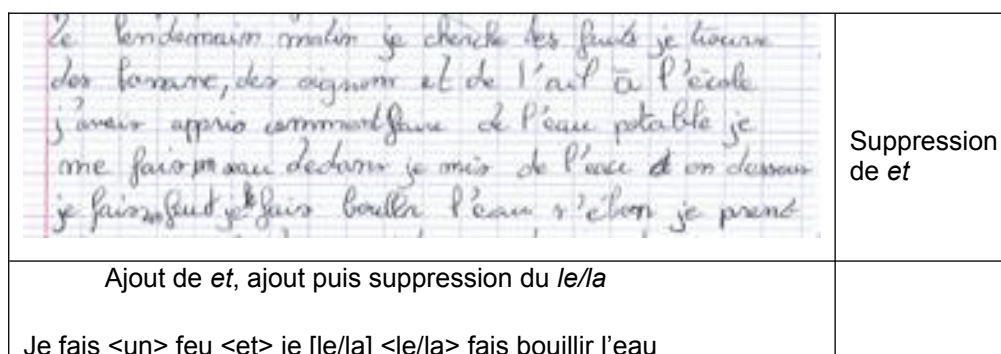 Le lendemain matin je cherche des fruits je trouve
des banane, des oignons et de l'ail à l'école
j'avais appris comment faire de l'eau potable je
me fais un seau dedans je mis de l'eau et en dessous
je fais un feut je le fais bouller l'eau s'ébon je prend
Suppression
de et
Ajout de et, ajout puis suppression du le/la
Je fais <un> feu <et> je [le/la] <le/la> fais bouillir l'eau